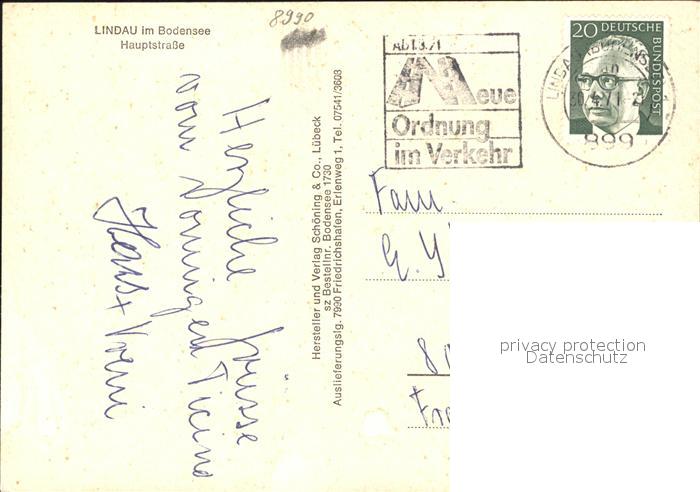 8990
LINDAU im Bodensee
Hauptstraße
Ab 1.3.71
Neue
Ordnung
im Verkehr
20 DEUTSCHE
BUNDESPOST
LINDAU
899
Herzliche Grüsse
vom
Ticino
Hans +
Hersteller und Verlag Schöning & Co., Lübeck
sz Bestellnr. Bodensee 1730
Auslieferungslg. 7990 Friedrichshafen, Erlenweg 1, Tel. 07541/3603
Fam.
G. Y
privacy protection
Datenschutz